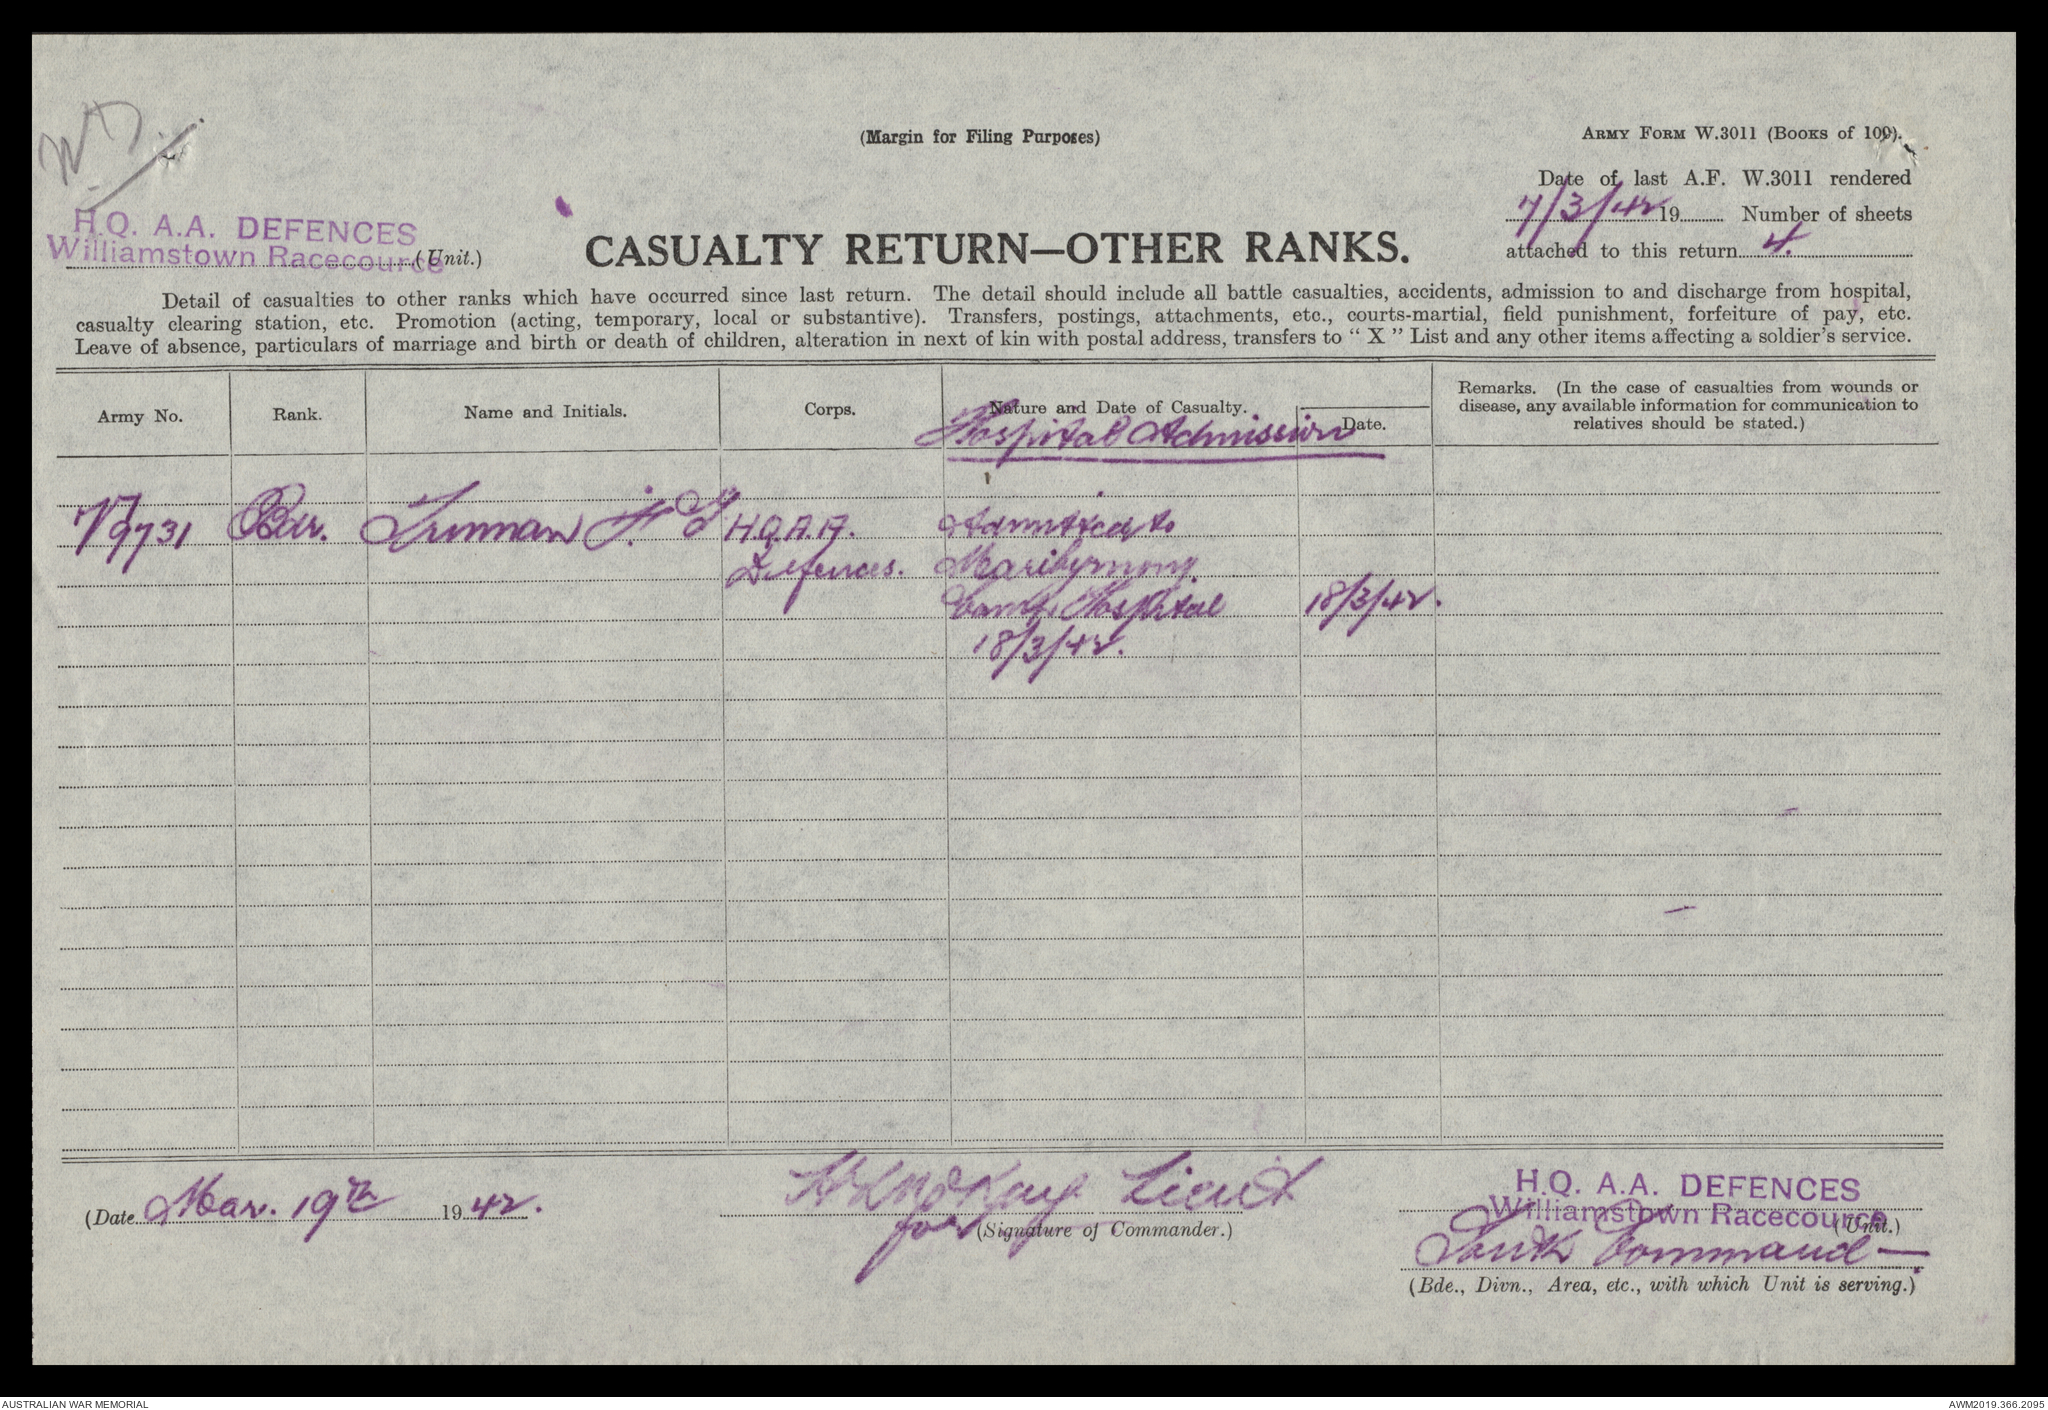 (Margin for Filing Purposes)
ARMY FORM W.3011 (BOOKS OF 100).
Date of last A.F. W.3011 rendered
7/3/42 19........ Number of sheets
attached to this return 4.
H.Q. A.A. DEFENCES
Williamstown Racecource (Unit.)
CASUALTY RETURN—OTHER RANKS.
Detail of casualties to other ranks which have occurred since last return. The detail should include all battle casualties, accidents, admission to and discharge from hospital,
casualty clearing station, etc. Promotion (acting, temporary, local or substantive). Transfers, postings, attachments, etc., courts-martial, field punishment, forfeiture of pay, etc.
Leave of absence, particulars of marriage and birth or death of children, alteration in next of kin with postal address, transfers to "X" List and any other items affecting a soldier's service.
Army No. Rank. Name and Initials. Corps. Nature and Date of Casualty. Date. Remarks. (In the case of casualties from wounds or
disease, any available information for communication to
relatives should be stated.)
Hospital Admission
V9731 Bdr. H.Q.A.A. Admitted to
Defences. Maribyrnong
Camp Hospital 18/3/42.
18/3/42.
(Date Mar. 19th 1942.
Lieut
for (Signature of Commander.)
H.Q. A.A. DEFENCES
Williamstown Racecource (Unit.)
South Command —
(Bde., Divn., Area, etc., with which Unit is serving.)
AUSTRALIAN WAR MEMORIAL
AWM2019.366.2095